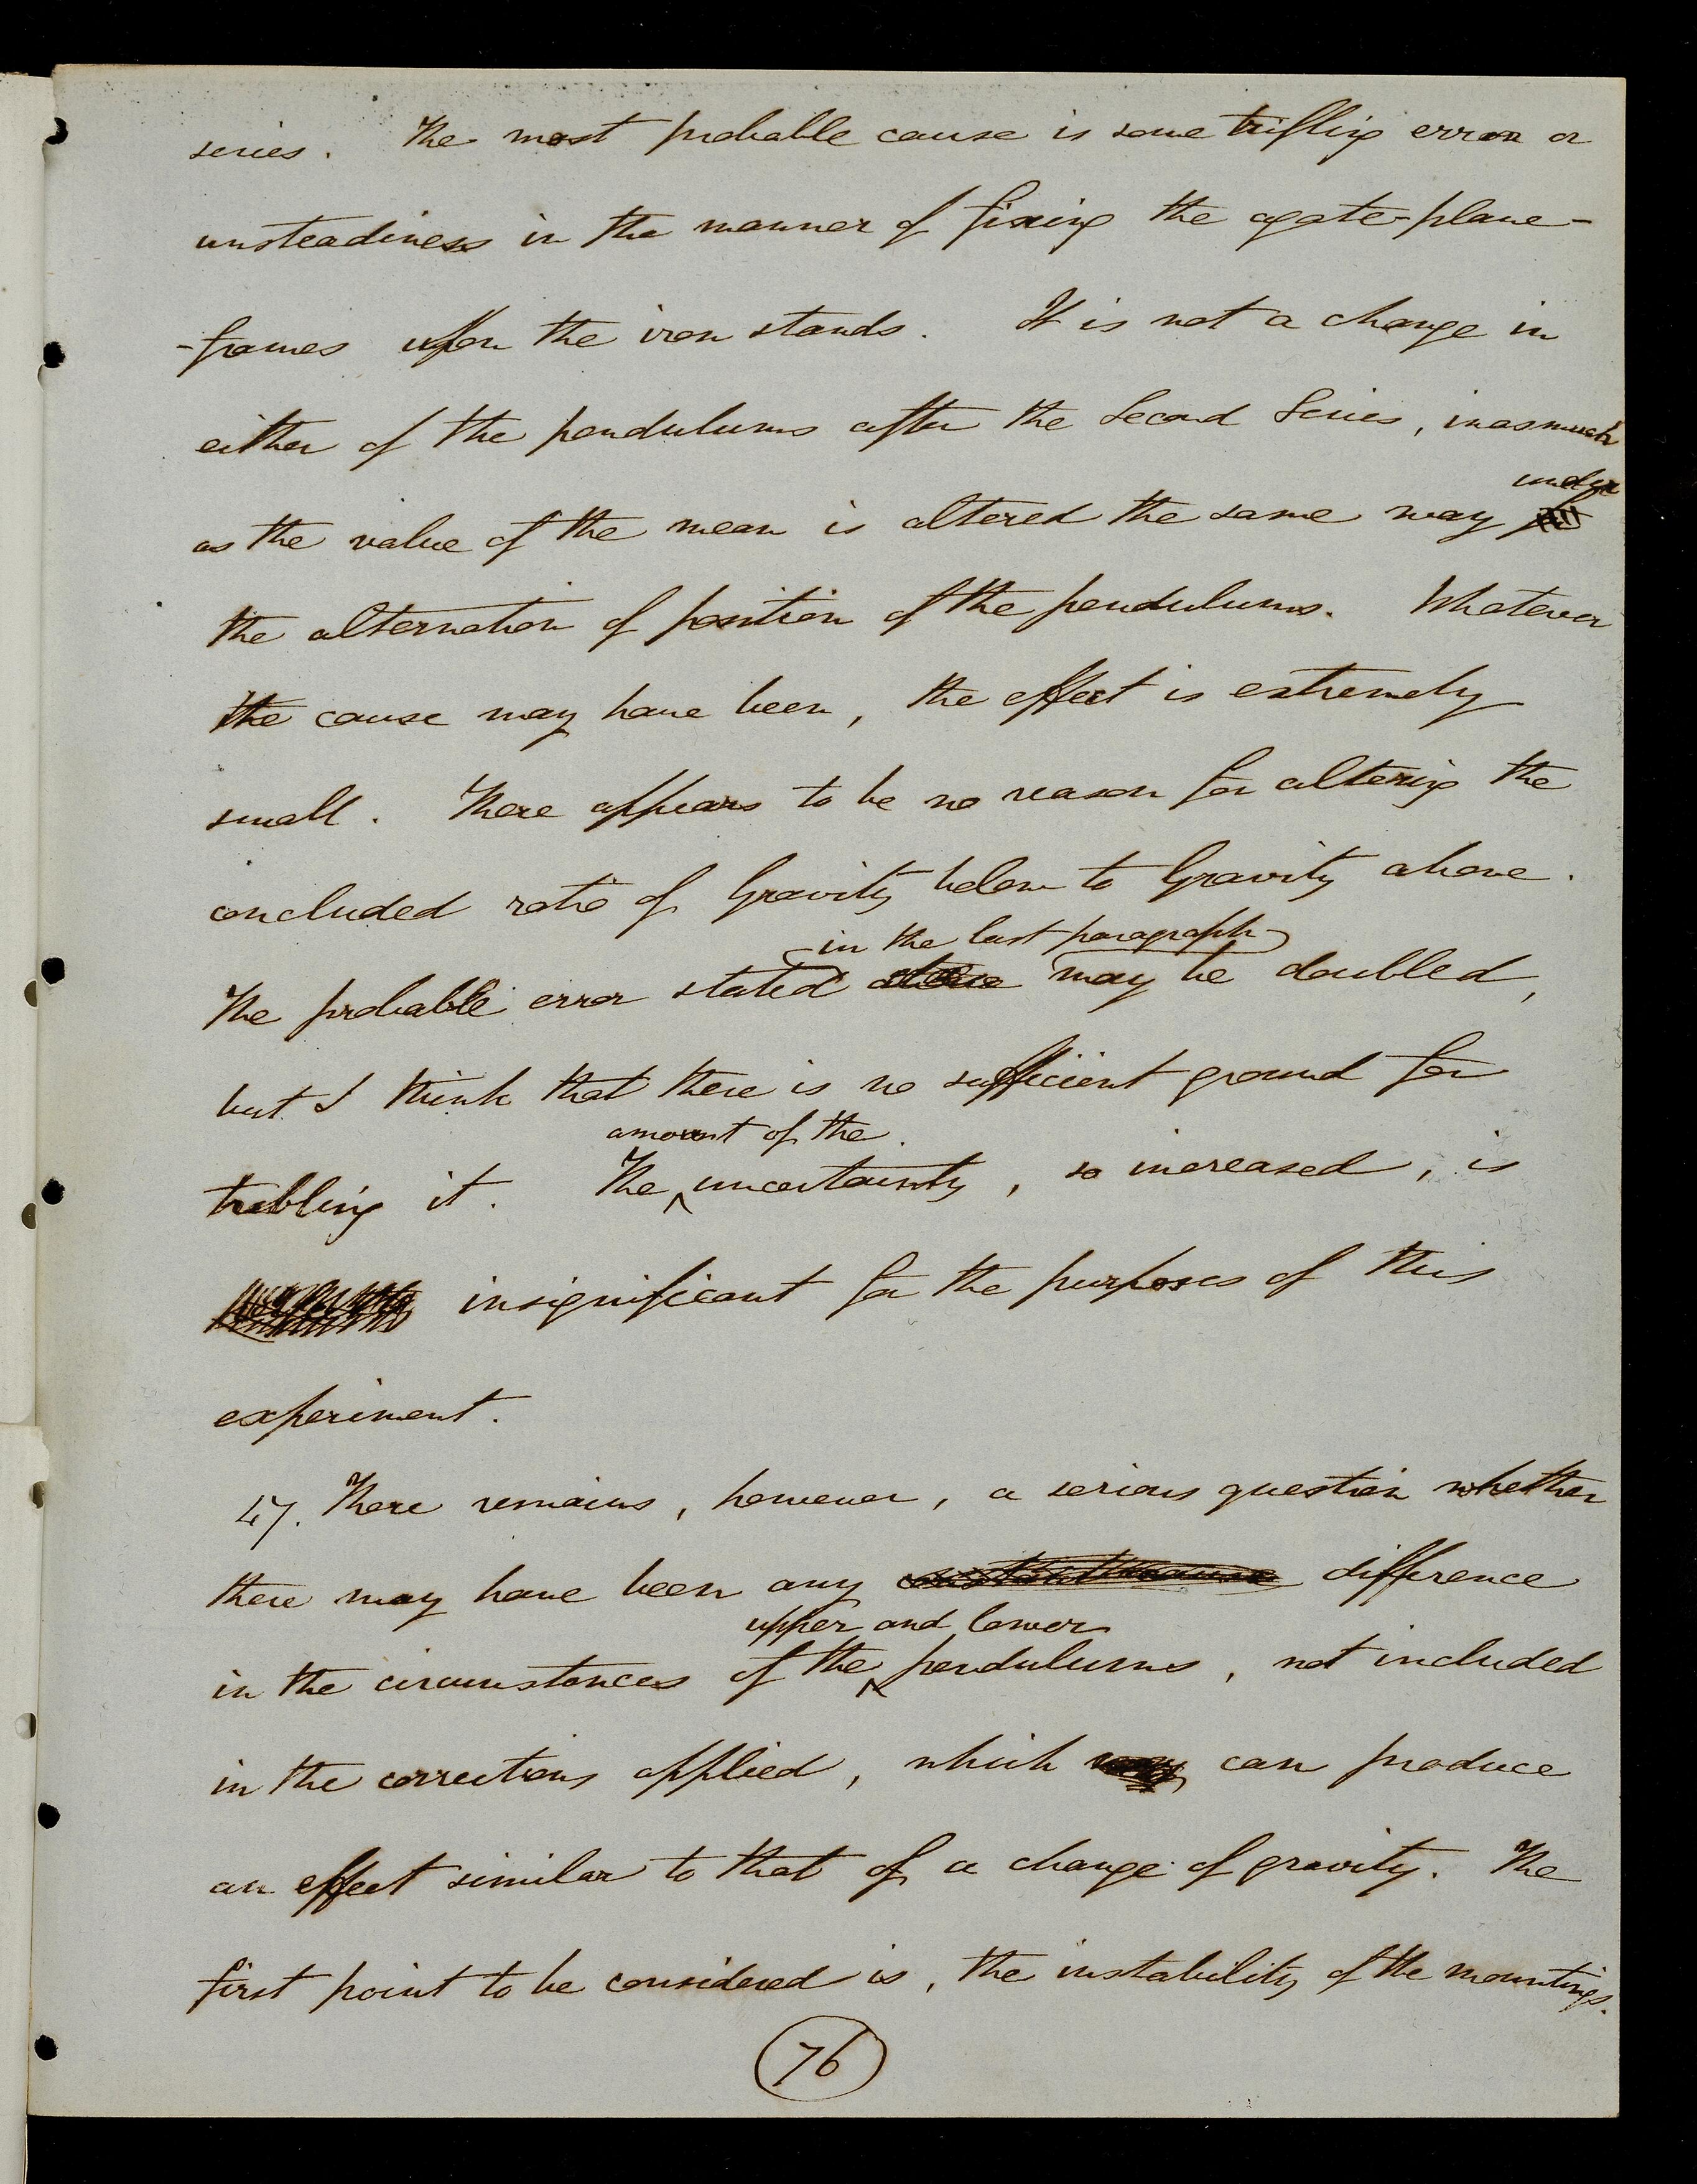 series. The most probable cause is some trifling error or
unsteadiness in the manner of fixing the agate-plane-
-frames upon the iron stands. It is not a change in
either of the pendulums after the Second Series, inasmuch
under
as the value of the mean is altered the same way
the alternation of position of the pendulums. Whatever
the cause may have been, the effect is extremely
small. There appears to be no reason for altering the
concluded ratio of Gravity below to Gravity above.
in the last paragraph
The probable error stated above may be doubled,
but I think that there is no sufficient ground for
amount of the
trebling it. The uncertainty, so increased, is
insignificant for the purposes of this
experiment.
47. There remains, however, a serious question whether
there may have been any difference
upper and lower
in the circumstances of the pendulums, not included
in the corrections applied, which can produce
an effect similar to that of a change of gravity. The
first point to be considered is, the instability of the mountings.
76